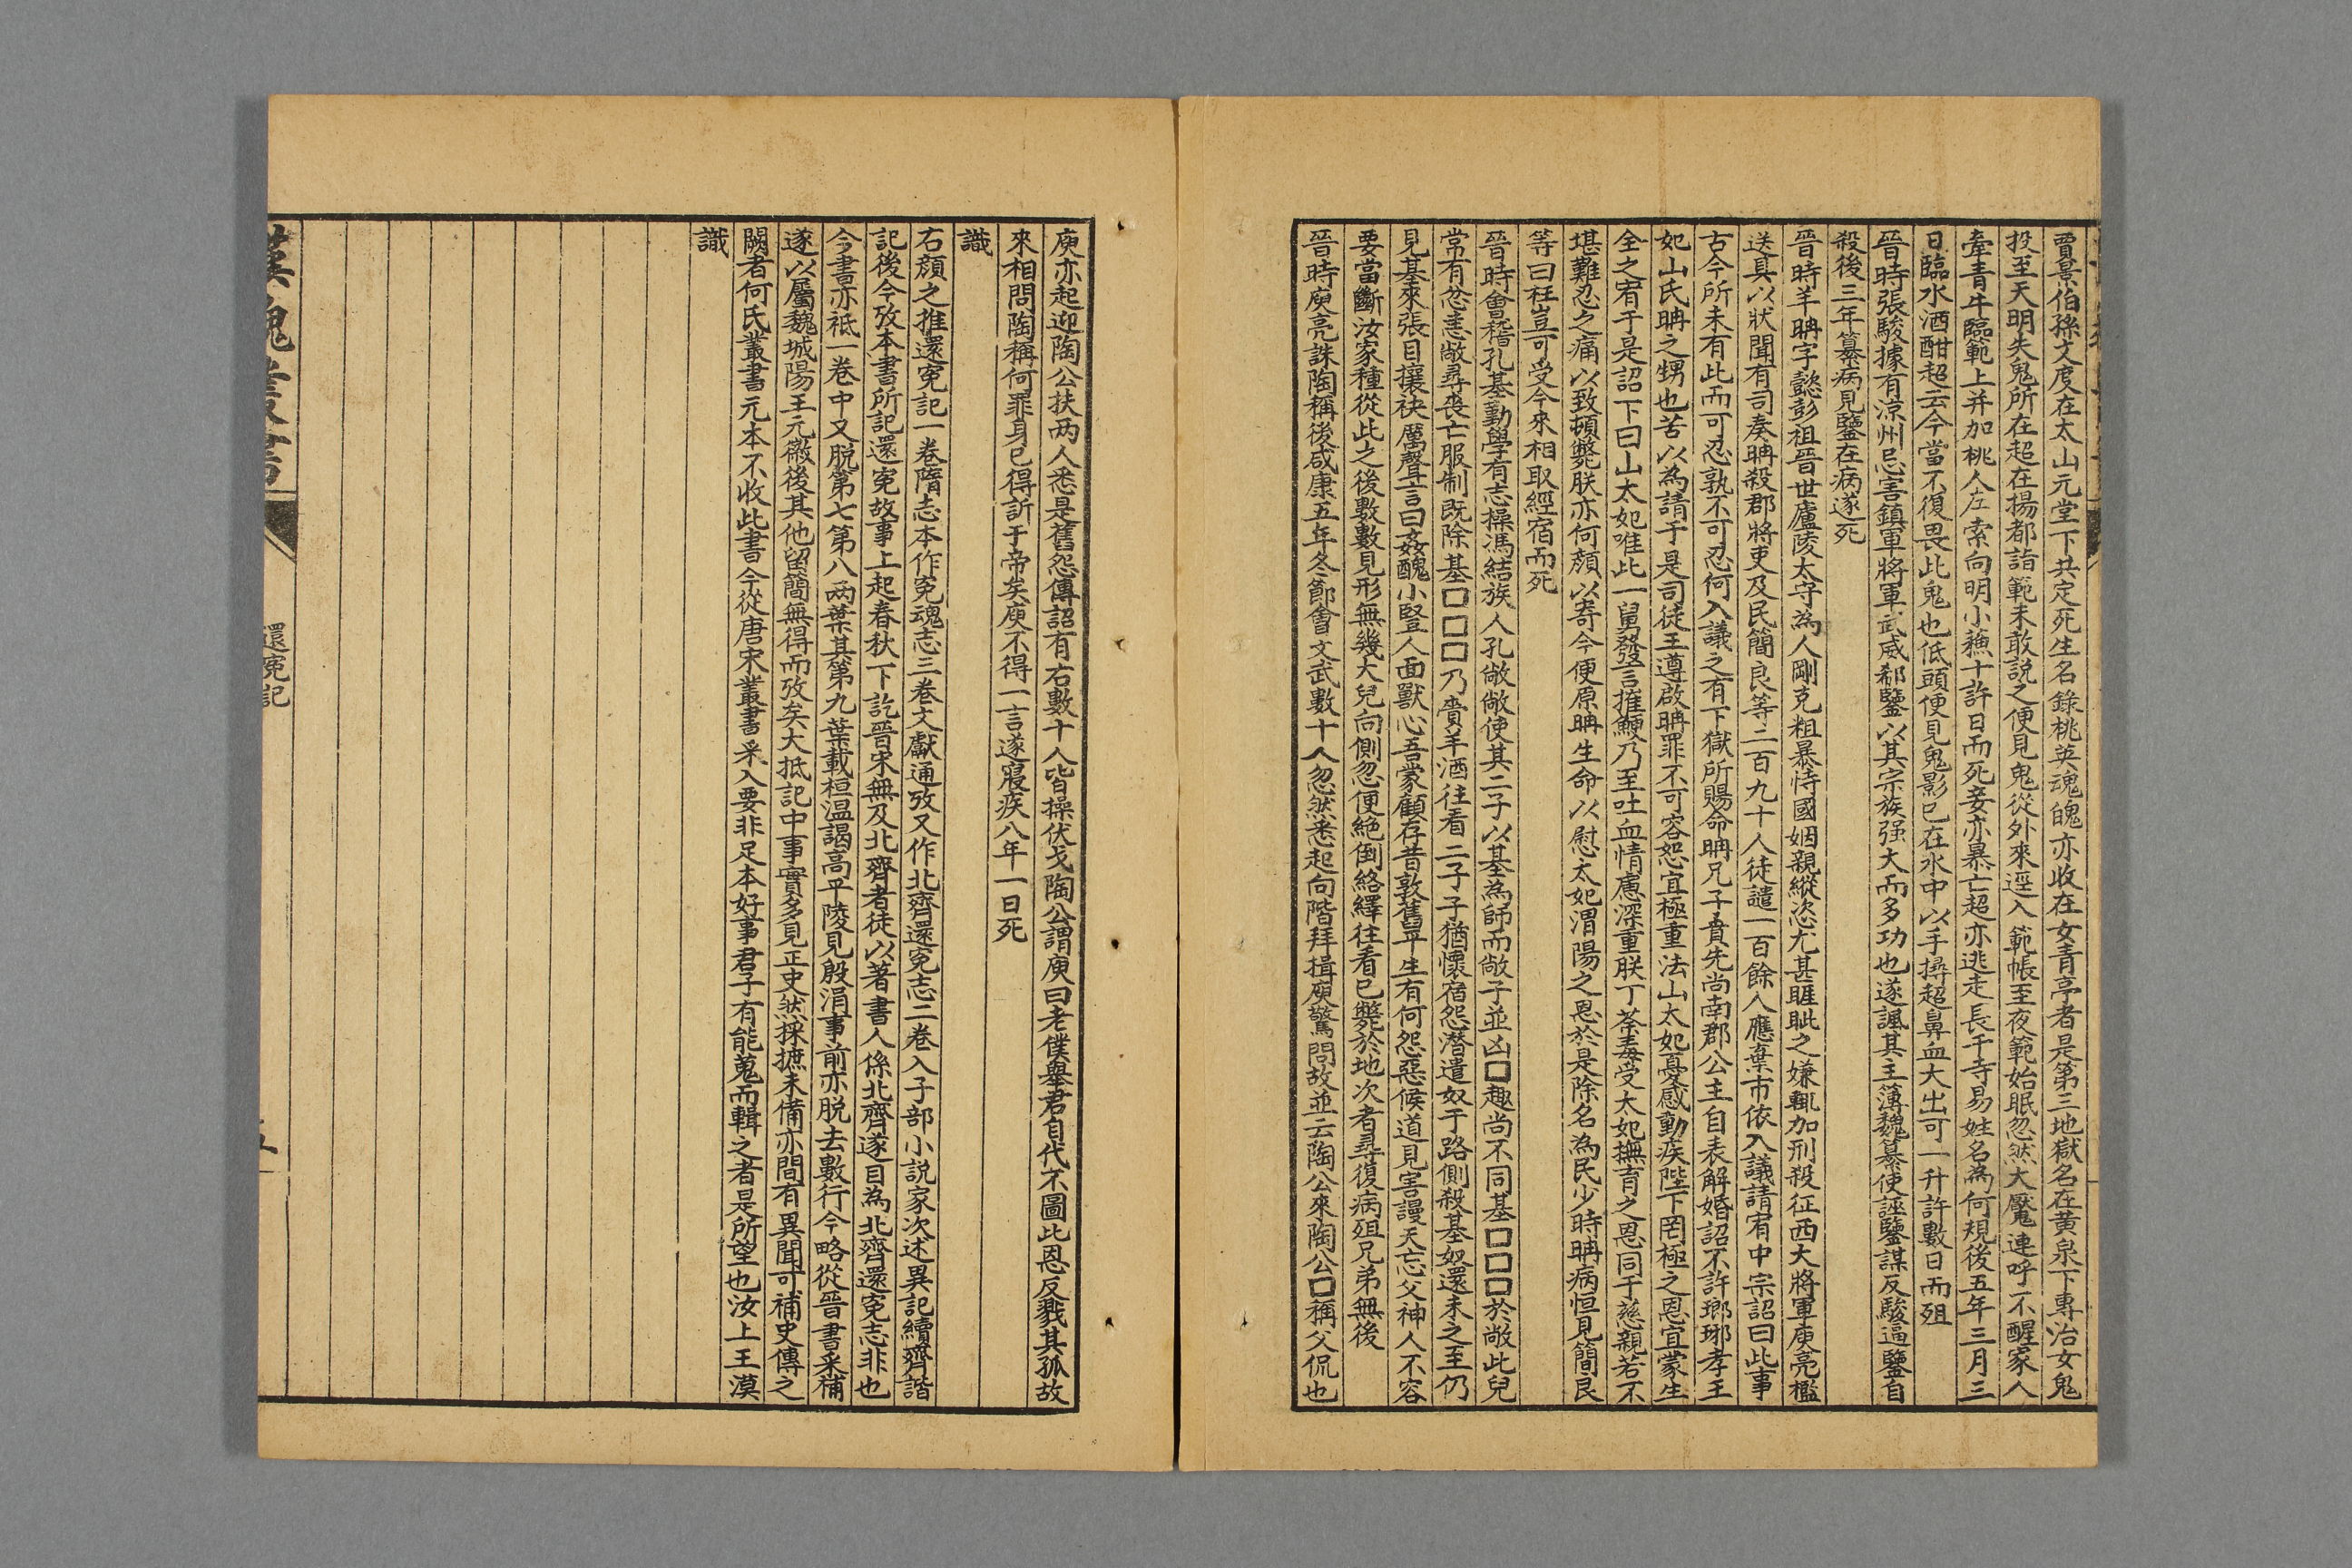 賈景伯孫文度在太山元堂下共定死生名錄桃英魂魄亦收在女青亭者是第三地獄名在黃泉下專治女鬼
投至天明失鬼所在超在揚都詣範未敢說之便見鬼從外來逕入範帳至夜範始眠忽然大魘連呼不醒家人
牽青牛臨範上并加桃人左索向明小穌十許日而死妾亦暴亡超亦逃走長干寺易姓名為何規後五年三月三
日臨水酒酣超云今當不復畏此鬼也低頭便見鬼影已在水中以手搏超鼻血大出可一升許數日而殂
晉時張駿據有涼州忌害鎮軍將軍武威郗鑒以其宗族强大而多功也遂諷其主簿魏纂使誣鑒謀反駿逼鑒自
殺後三年纂病見鑒在病遂死
晉時羊聃字懿彭祖晉世廬陵太守為人剛克粗暴恃國姻親縱恣尤甚睚眦之嫌輒加刑殺征西大將軍庾亮檻
送具以狀聞有司奏聃殺郡將吏及民簡良等二百九十人徒譴一百餘人應棄市依入議請宥中宗詔曰此事
古今所未有此而可忍孰不可忍何入議之有下獄所賜命聃兄子賁先尚南郡公主自表解婚詔不許瑯琊孝王
妃山氏聃之甥也苦以為請于是司徒王導啟聃罪不可容恕宜極重法山太妃憂慼動疾陛下罔極之恩宜蒙生
全之宥于是詔下曰山太妃唯此一舅發言摧鯁乃至吐血情慮深重朕丁荼毒受太妃撫育之恩同于慈親若不
堪難忍之痛以致頓斃朕亦何顏以寄今便原聃生命以慰太妃渭陽之恩於是除名為民少時聃病恒見簡良
等曰枉豈可受今來相取經宿而死
晉時會稽孔基勤學有志操馮結族人孔敞敞使其二子以基為師而敞子並凶囗趣尚不同基囗囗囗於敞此兒
常有忿恚敞尋喪亡服制既除基囗囗囗乃賫羊酒往看二子子猶懷宿怨潛遣奴于路側殺基奴還未之至仍
見基來張目攘袂厲聲言曰姦醜小豎人面獸心吾蒙顧存昔敦舊平生有何怨惡候道見害謾天忘父神人不容
要當斷汝家種從此之後數數見形無幾大兒向側忽便絶倒絡繹往看已斃於地次者尋復病殂兄弟無後
晉時庾亮誅陶稱後咸康五年冬節會文武數十人忽然悉起向階拜揖庾驚問故並云陶公來陶公囗稱父侃也
庾亦起迎陶公扶两人悉是舊怨傳詔有右數十人皆操伏戈陶公謂庾曰老僕舉君自代不圖此恩反戮其孤故
來相問陶稱何罪身已得訴于帝矣庾不得一言遂寢疾八年一日死
識
右顏之推還冤記一卷隋志本作冤魂志三卷文獻通攷又作北齊還冤志二卷入子部小説家次述異記續齊諧
記後今攷本書所記還冤故事上起春秋下訖晉宋無及北齊者徒以著書人係北齊遂目為北齊還冤志非也
今書亦祗一卷中又脱第七第八两葉其第九葉載桓温謁高平陵見殷涓事前亦脱去數行今略從晉書采補
遂以屬魏城陽王元徽後其他留簡無得而攷矣大抵記中事實多見正史然採摭未備亦間有異聞可補史傳之
闕者何氏叢書元本不收此書今從唐宋叢書采入要非足本好事君子有能蒐而輯之者是所望也汝上王謨
識
漢魏叢書
還冤記
五